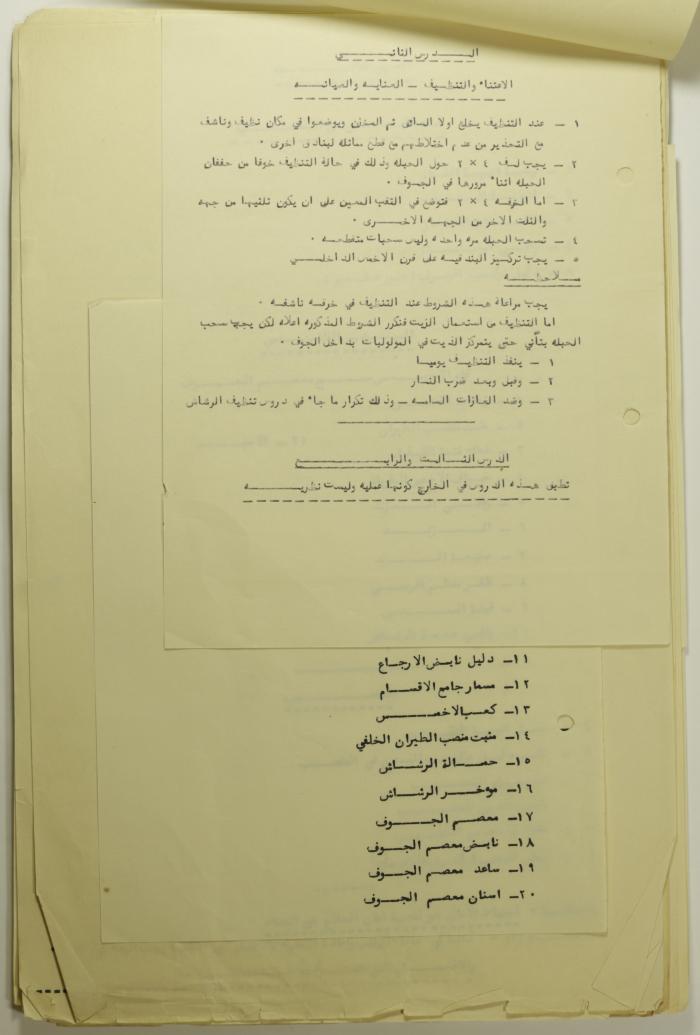 الـــدرس الثانـــــي
الاعتناء والتنظـيـف ـ العنايـه والصيانــــه
١ ـ عند التنظيف يخلع اولا الساتر ثم المخزن ويوضعوا في مكان نظيف وناشف
مع التحذير من عدم اختلاطهم مع قطع مماثله لبنادق اخرى ٠
٢ ـ يجب لـف ٤ × ٢ حول الحبله وذلك في حالة التنظيف خوفا من
الحبله اثناء مرورها في الجـوف ٠
٣ ـ اما الخرقـه ٤ × ٢ فتوضع في الثقب المعين على ان يكون ثلثيها من جهه
والثلث الاخر من الجهـه الاخــــرى ٠
٤ ـ تسحب الحبله مره واحده وليس سحبات متقطعـه ٠
٥ ـ يجب تركـيـز البندقيـه على قرن الاخمص الداخلـــي
مـــلاحظــــه
يجب مراعاة هـــذه الشروط عند التنظيف في خرقـه ناشفـه ٠
اما التنظيف مع استعمـال الزيت فتكرر الشروط المذكوره اعلاه لكن يجب سحب
الحبله بتأني حتى يتمركز الزيت في المولوليات بداخل الجوف ٠
١ ـ ينفذ التنظيـف يوميـا
٢ ـ وقبل وبعد ضرب النـــار
٣ ـ وضد الغازات السامـه ـ وذلك تكرار ما جاء في دروس تنظيف الرشاش
الدرس الثــــالــث والرابـــــع
تطبق هـــذه الدروس في الخارج كونها عمليه وليست نظريـــــه
١١ـ دليل نابض الارجاع
١٢ـ مسمار جامع الاقســـام
١٣ـ كعـب الاخمـــــــص
١٤ـ مثبت منصب الطيران الخلفي
١٥ـ حمـــالة الرشــــاش
١٦ـ موءخـــر الرشــــاش
١٧ـ معصـــم الجـــــوف
١٨ـ نابـض معصـم الجــوف
١٩ـ ساعد معصـم الجــــوف
٢٠ـ اسنان معصـم الجــــوف